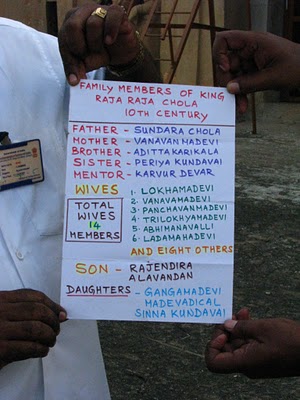 FAMILY MEMBERS OF KING
RAJA RAJA CHOLA
10TH CENTURY
FATHER - SUNDARA CHOLA
MOTHER - VANAVAN MADEVI
BROTHER - ADITTAKARIKALA
SISTER - PERIYA KUNDAVAI
MENTOR - KARVUR DEVAR
WIVES
TOTAL
WIVES
14
MEMBERS
1. LOKHAMADEVI
2. VANAVAMADEVI
3. PANCHAVANMADEVI
4. TRILOKHYAMADEVI
5. ABHIMANAVALLI
6. LADAMAHADEVI
AND EIGHT OTHERS
SON - RAJENDIRA
ALAVANDAN
DAUGHTERS - GANGAMADEVI
MADEVADICAL
SINNA KUNDAVAI